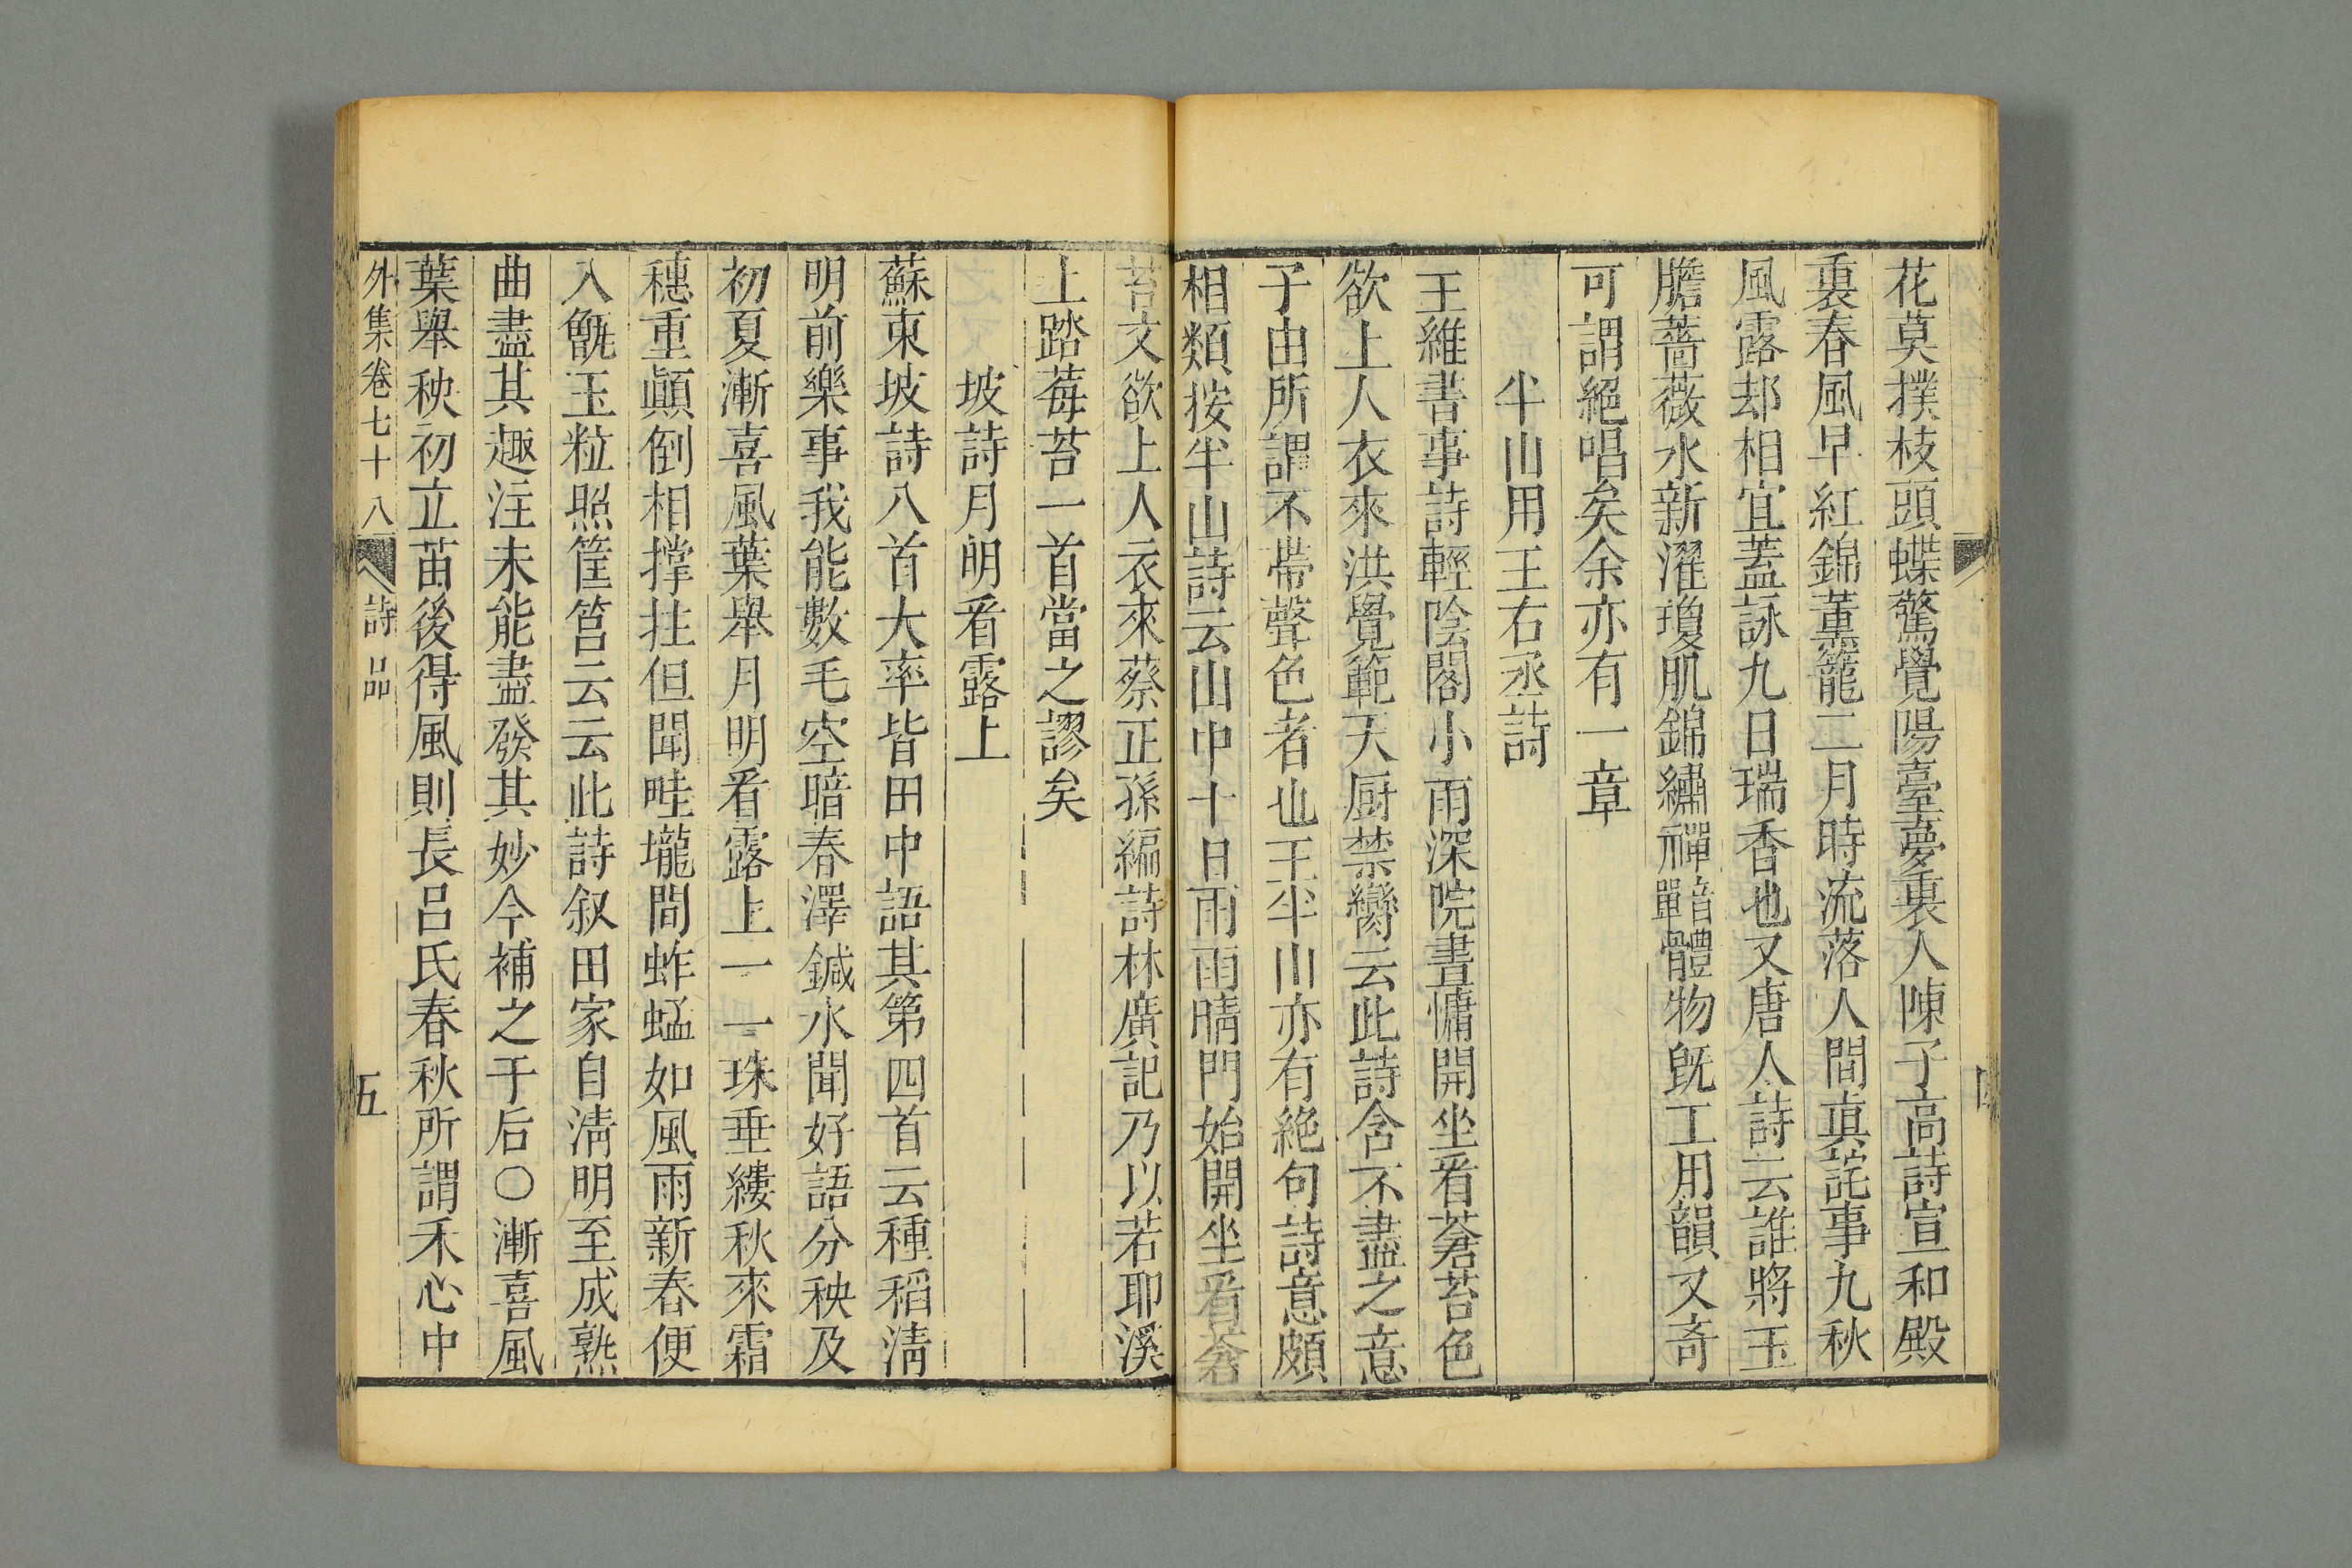 花莫撲枝頭蝶驚覺陽臺夢裏人陳子高詩宣和殿
裏春風早紅錦薰籠二月時流落人間真詫事九秋
風露却相宜蓋詠九日瑞香也又唐人詩云誰將玉
膽薔薇水新濯瓊肌錦繡禪音單體物既工用韻又奇
可謂絕唱矣余亦有一章
半山用王右丞詩
王維書事詩輕陰閣小雨深院晝慵開坐看蒼苔色
欲上人衣來洪覺範天厨禁臠云此詩含不盡之意
子由所謂不帶聲色者也王半山亦有絕句詩意頗
相類按半山詩云山中十日雨雨晴門始開坐看蒼
苔文欲上人衣來蔡正孫編詩林廣記乃以若耶溪
上踏莓苔一首當之謬矣
坡詩月明看露上
蘇東坡詩八首大率皆田中語其第四首云種稻淸
明前樂事我能數毛空暗春澤鍼水聞好語分秧及
初夏漸喜風葉舉月明看露上一一珠垂縷秋來霜
穗重顚倒相撑拄但聞畦壠間蚱蜢如風雨新春便
入甑玉粒照筐筥云云此詩叙田家自淸明至成熟
曲盡其趣注未能盡發其妙今補之于后○漸喜風
葉舉秧初立苗後得風則長呂氏春秋所謂禾心中
外集卷七十八 詩品 五